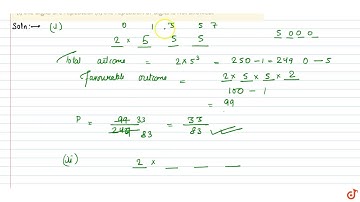 Soln:→ (i) 0 1 3 5 7
5 0 0 0
2 × 5 5 5
Total outcome = 2×5³ = 250 – 1 = 249 0 – 5
Favourable outcome = 2 × 5 × 5 × 2
100 – 1
= 99
P = 99 33 / 249 83 = 33 / 83
(ii) 2 ×